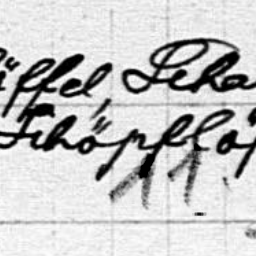 üffel, Scha
Schöpflöf
11.